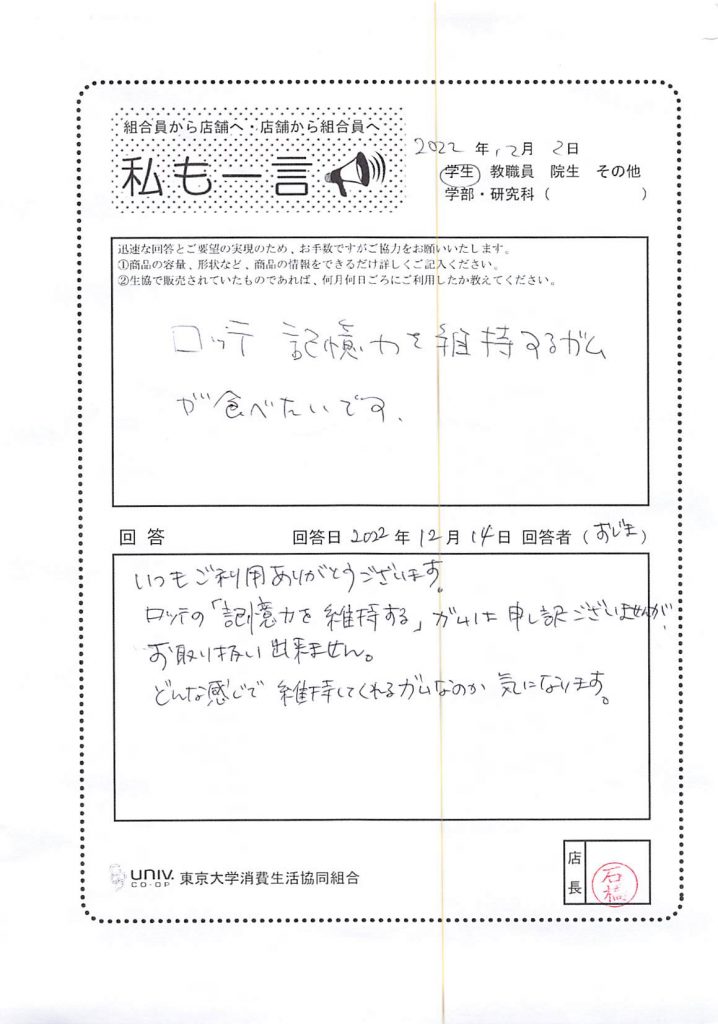 組合員から店舗へ・店舗から組合員へ
私も一言
2022 年 12月 2日
学生 教職員 院生 その他
学部・研究科（ ）
迅速な回答とご要望の実現のため、お手数ですがご協力をお願いいたします。
①商品の容量、形状など、商品の情報をできるだけ詳しくご記入ください。
②生協で販売されていたものであれば、何月何日ごろにご利用したか教えてください。
ロッテ 記憶力を維持するガム
が食べたいです.
回答 回答日 2022 年 12 月 14 日 回答者（おじま）
いつもご利用ありがとうございます。
ロッテの「記憶力を維持する」ガムは申し訳ございませんが
お取り扱い出来ません。
どんな感じで維持してくれるガムなのか気になります。
UNIV. CO-OP 東京大学消費生活協同組合
店長